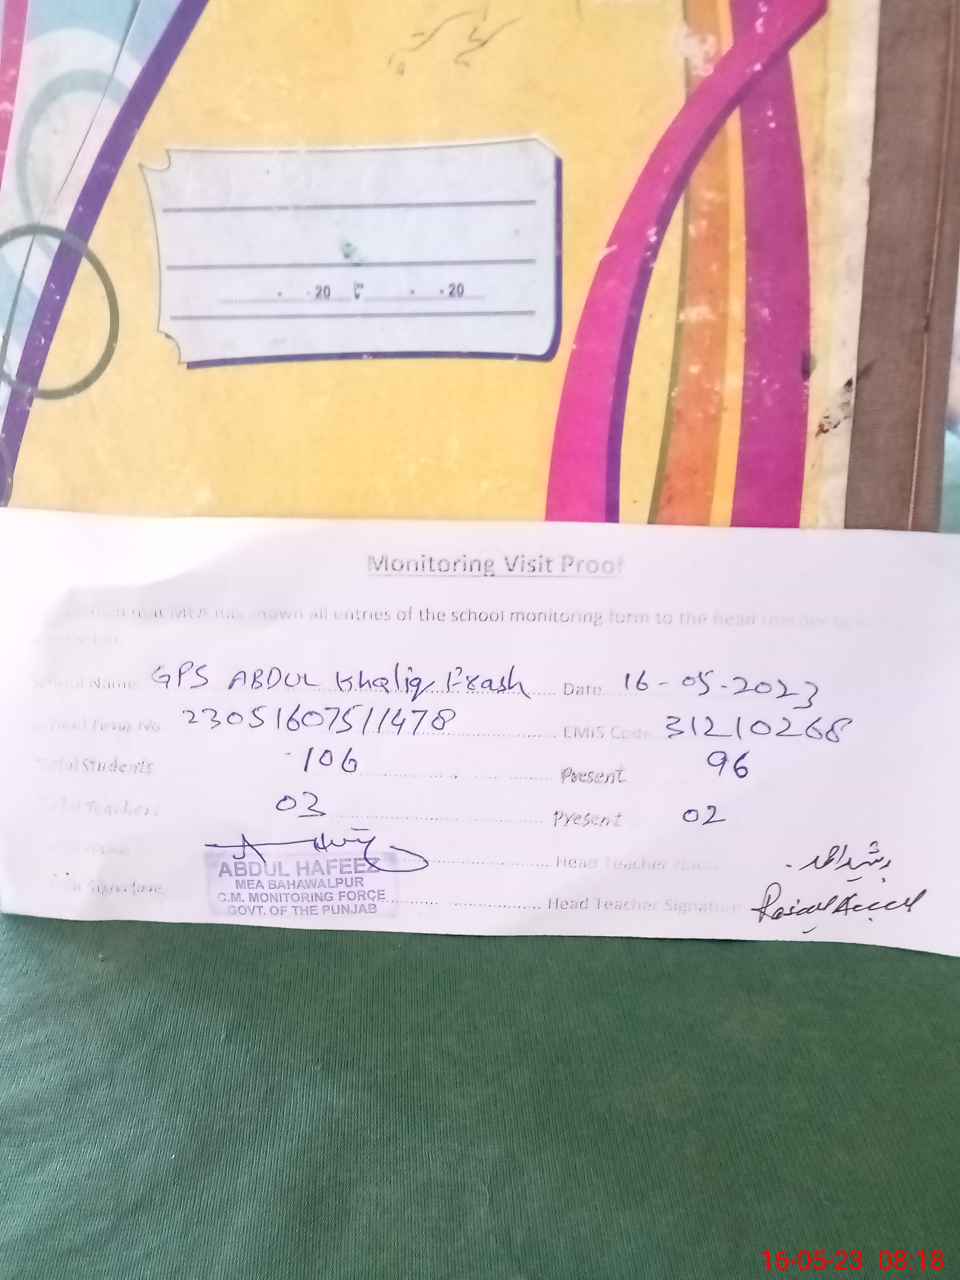 - -20 تا - -20
Monitoring Visit Proof
that MEA has shown all entries of the school monitoring form to the head
School Name GPS ABDUL Khaliq Frash Date 16-05-2023
23051607511478 EMIS Code 31210268
Total Students 106 Present 96
Total Teachers 03 Present 02
Head Teacher Name رشید احمد
ABDUL HAFEEZ
MEA BAHAWALPUR
C.M. MONITORING FORCE
GOVT. OF THE PUNJAB
Signature Head Teacher Signature
16-05-23 08:18